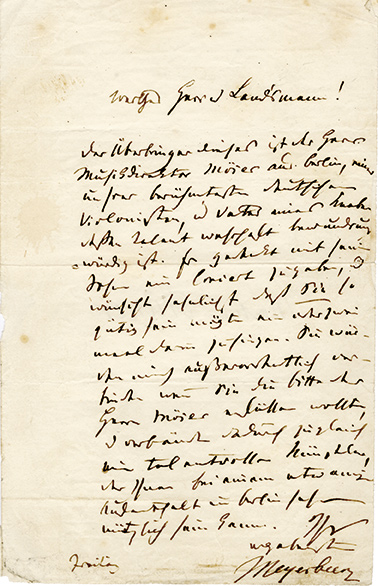 werther Herr u Landsmann!
der Überbringer dieses ist der Herr
Musikdirektor Möser aus Berlin, einer
unserer berühmtesten deutschen
Violonisten, u Vater eines Knaben
dessen Talent wahrhaft bewundrungs
würdig ist. Er gedenkt mit seinem
Sohne ein Concert zu geben, u
wünscht sehnlichst daß Sie so
gütig sein mögten ein oder zwei
mal darin zu singen. Sie wür-
den mich außerordentlich ver-
binden wenn Sie die Bitte des
Herrn Möser erfüllen wollten,
u verbänden dadurch zugleich
einen talentvollen Künstler,
der Ihnen bei einem etwaigen
Aufenthalt in Berlin sehr
nützlich sein kann.
Ihr
ergebenster
Meyerbeer
Freitag